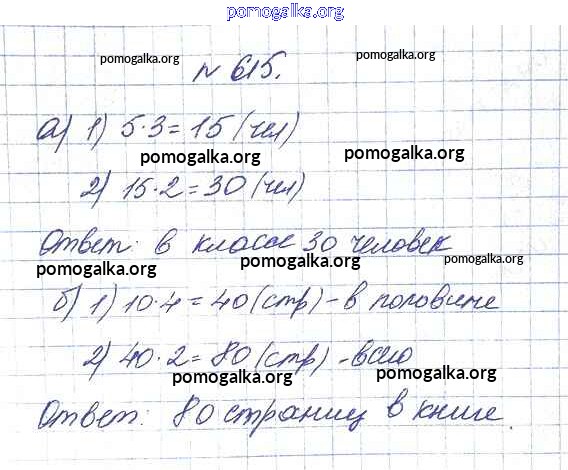 pomogalka.org
pomogalka.org pomogalka.org
№ 615.
а) 1) 5·3=15 (чел)
pomogalka.org pomogalka.org
2) 15·2=30 (чел)
pomogalka.org
Ответ: в классе 30 человек
pomogalka.org pomogalka.org pomogalka.org
б) 1) 10·4=40 (стр) - в половине
2) 40·2=80 (стр) - всего
pomogalka.org pomogalka.org
Ответ: 80 страниц в книге.